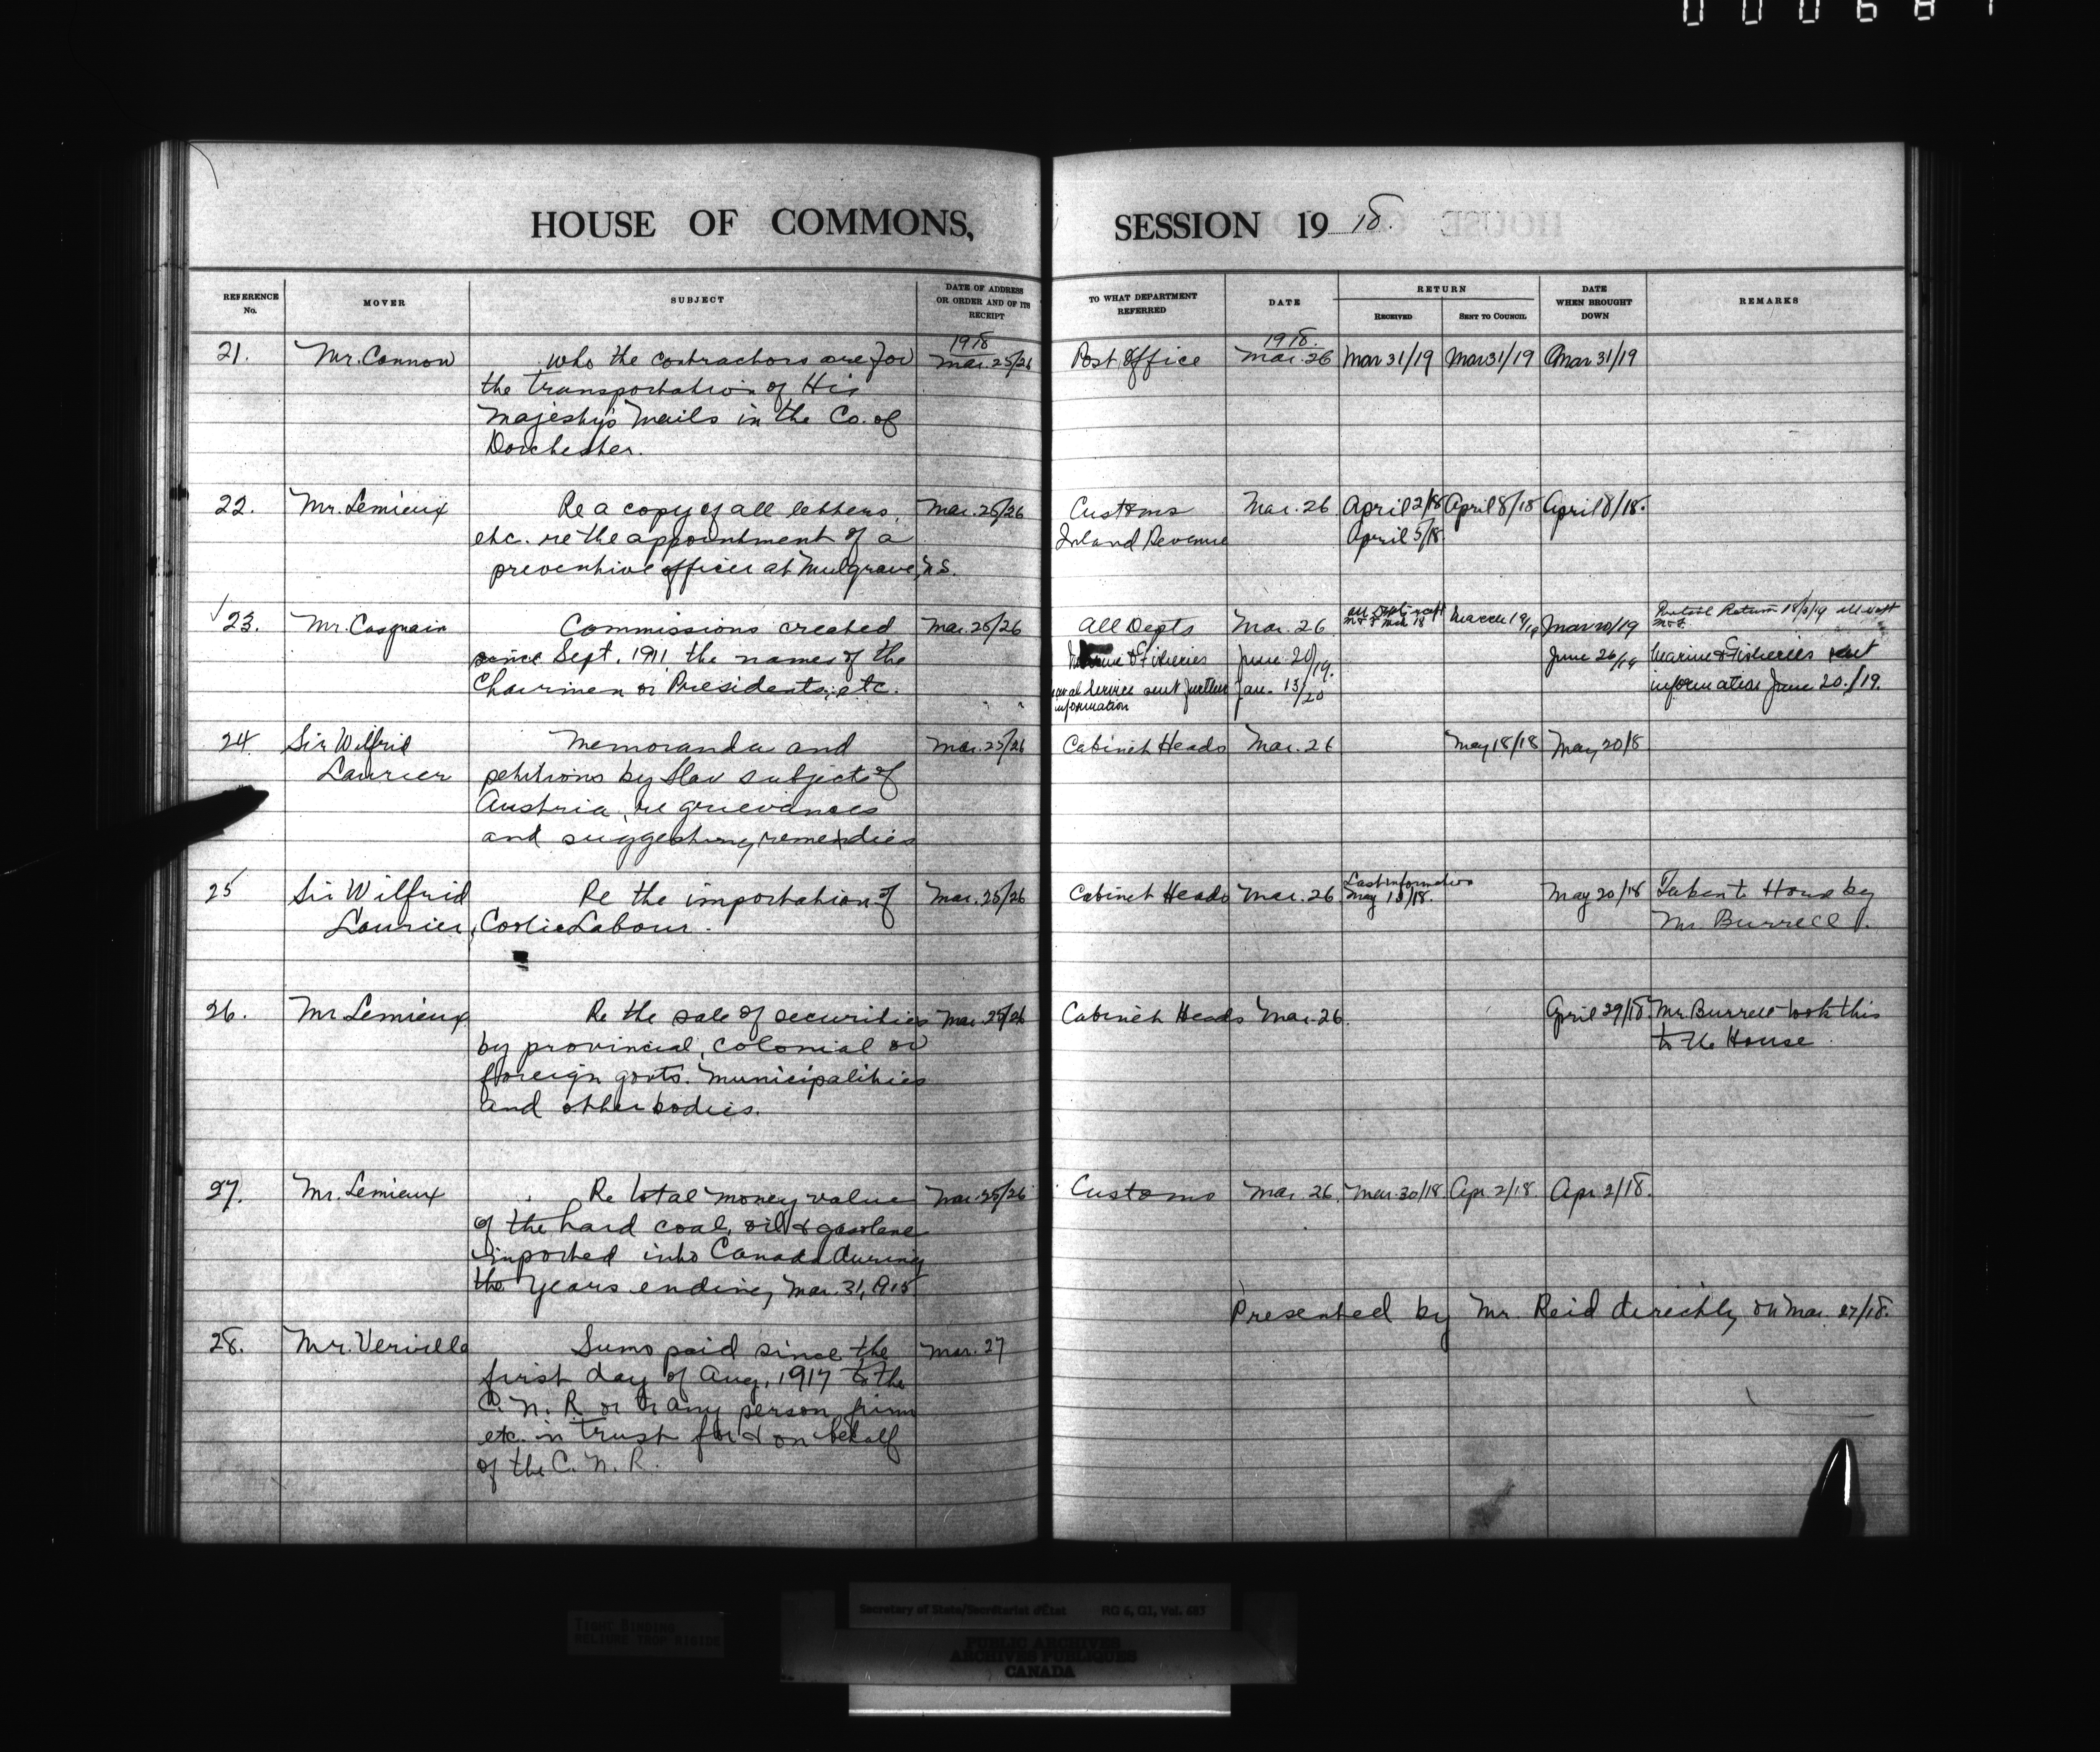 000687
HOUSE OF COMMONS,
REFERENCE No.
MOVER
SUBJECT
DATE OF ADDRESS OR ORDER AND OF ITS RECEIPT
1918
21. Mr. Cannon who the contractors are for Mar. 25/26
the transportation of His
Majesty's Mails in the Co. of
Dorchester.
22. Mr. Lemieux Re a copy of all letters, Mar. 25/26
etc. re the appointment of a
preventive officer at Mulgrave, N.S.
23. Mr. Casgrain Commissions created Mar. 25/26
since Sept. 1911, the names of the
Chairmen or Presidents, etc.
24. Sir Wilfrid Memoranda and Mar. 25/26
Laurier petitions by Slav subjects of
Austria, re grievances
and suggesting remedies
25 Sir Wilfrid Re the importation of Mar. 25/26
Laurier, Coolie Labour.
26. Mr Lemieux Re the sale of securities Mar. 25/26
by provincial, colonial or
foreign govts. municipalities
and other bodies.
27. Mr. Lemieux Re total money value Mar. 25/26
of the hard coal, oil & gasolene
imported into Canada during
the years ending Mar. 31, 1915
28. Mr. Verville Sums paid since the Mar. 27
first day of Aug, 1917 to the
C. N. R. or to any person, firm
etc. in trust for & on behalf
of the C. N. R.
SESSION 1918.
TO WHAT DEPARTMENT REFERRED
DATE
RETURN
RECEIVED
SENT TO COUNCIL
DATE WHEN BROUGHT DOWN
REMARKS
1918.
Post Office Mar. 26 Mar 31/19 Mar 31/19 Mar 31/19
Customs Mar. 26 April 2/18 April 8/18 April 8/18.
Inland Revenue April 5/18
All Depts Mar. 26 March 19/19 Mar 20/19 Partial Return 18/3/19 all except
M & F.
Marine & Fisheries June 20/19. June 26/19 Marine & Fisheries sent
Naval Service sent further Jan. 13/20 information June 20./19.
information
Cabinet Heads Mar. 26 May 18/18 May 20/8
Cabinet Heads Mar. 26 Last information May 18/18. May 20/18 Taken to House by
Mr. Burrell.
Cabinet Heads Mar. 26. April 29/18. Mr. Burrell took this
to the House.
Customs Mar. 26. Mar. 30/18. Apr 2/18 Apr. 2/18.
Presented by Mr. Reid directly on Mar. 27/18.
TIGHT BINDING
RELIURE TROP RIGIDE
Secretary of State/Secrétariat d'État RG 6, G1, Vol. 683
PUBLIC ARCHIVES
ARCHIVES PUBLIQUES
CANADA